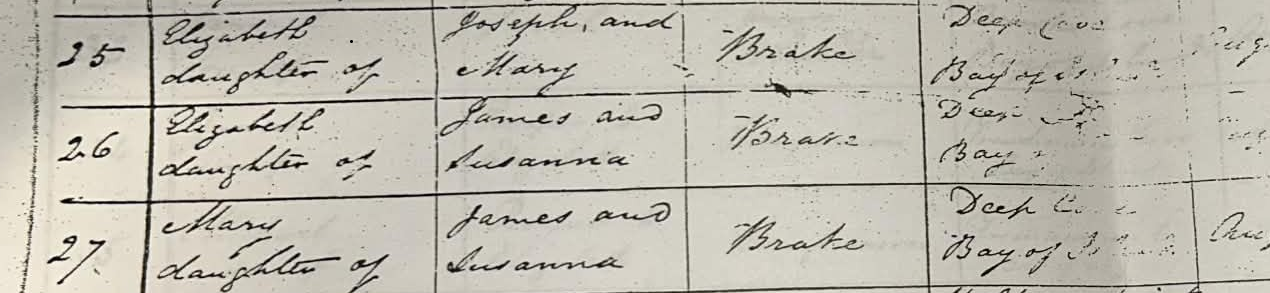 25 Elizabeth Joseph, and Brake Deep Cove
daughter of Mary Bay of
26 Elizabeth James and Brake Deep
daughter of Susanna Bay
27 Mary James and Brake Deep
daughter of Susanna Bay of